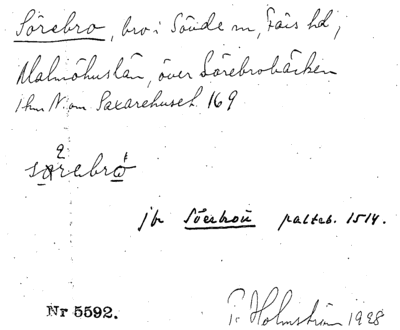 Sörebro, bro i Sövde sn, Färs hd,
Malmöhus län, över Sörebrobäcken
1 km N. om Saxarehuset 169
sørebrω
jfr Söerbroü palteb. 1514.
Nr 5592.
P. Holmström 1928